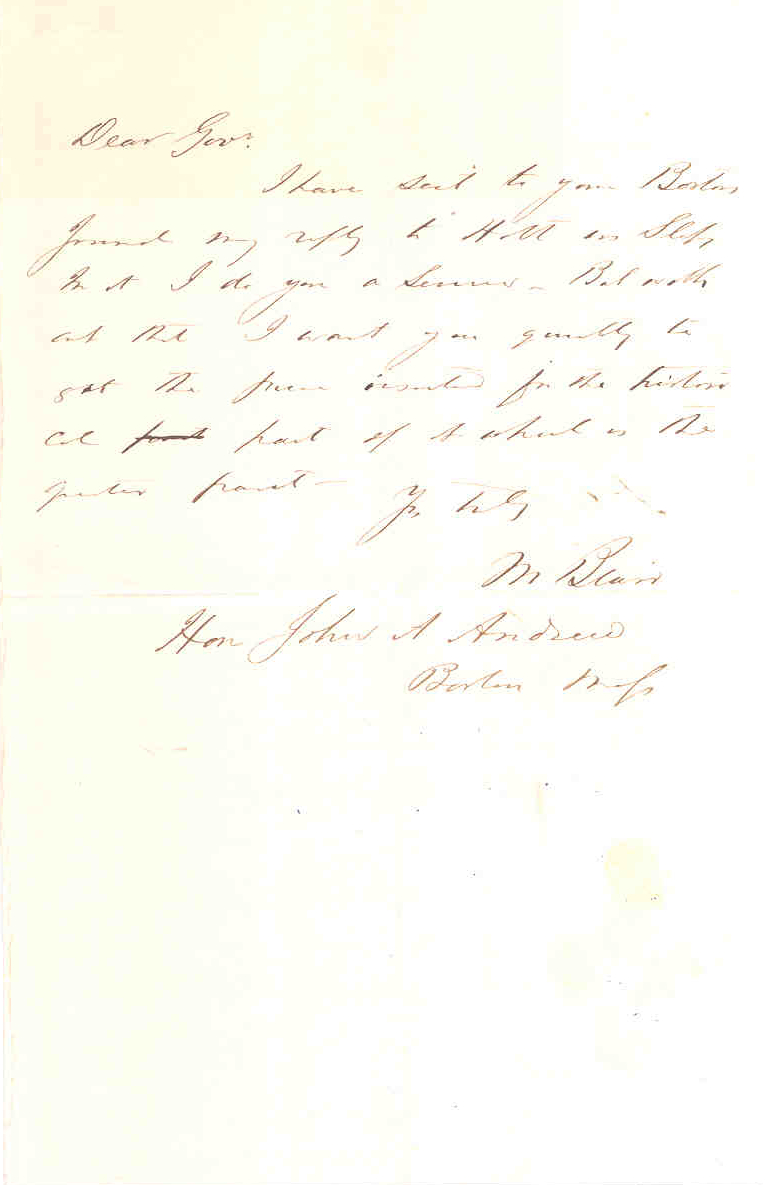 Dear Govr.
I have sent to your Boston
Journal my reply to Holt in Slip
In it I do you a Service - But with
out that I want you quietly to
get the piece inserted for the histori
cal part of it which is the
greater part -
Yrs truly
M Blair
Hon John A Andrew
Boston Mass